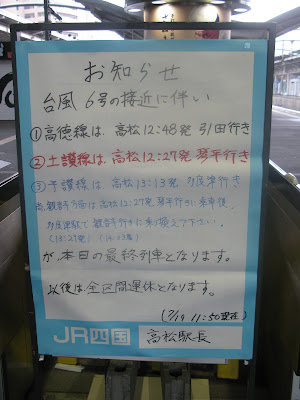 お知らせ
台風 6号の接近に伴い
①高徳線は、高松12:48発 引田行き
②土讃線は、高松12:27発 琴平行き
③予讃線は、高松13:13発 多度津行き
尚、観音寺方面は高松12:27発 琴平行に乗車後、
多度津駅で観音寺行きに乗り換え下さい。
が、本日の最終列車となります。
以後は全区間運休となります。
(7/19 11:50現在)
JR四国 高松駅長